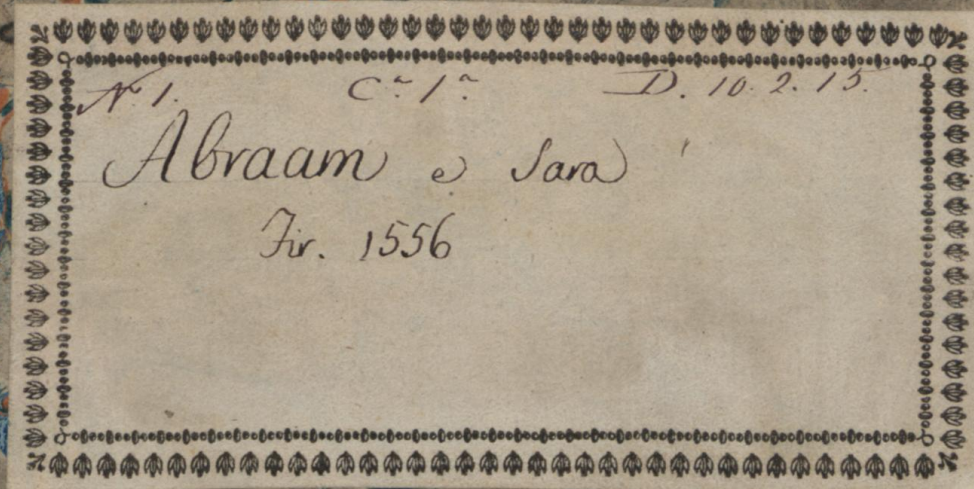 N. 1. Cᵃ 1ᵃ D. 10. 2. 15.
Abraam e Sara
Fir. 1556